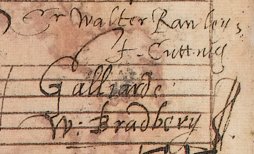 Sr Walter Rawleys
F. Cutting
Galliarde
W: Bradbery